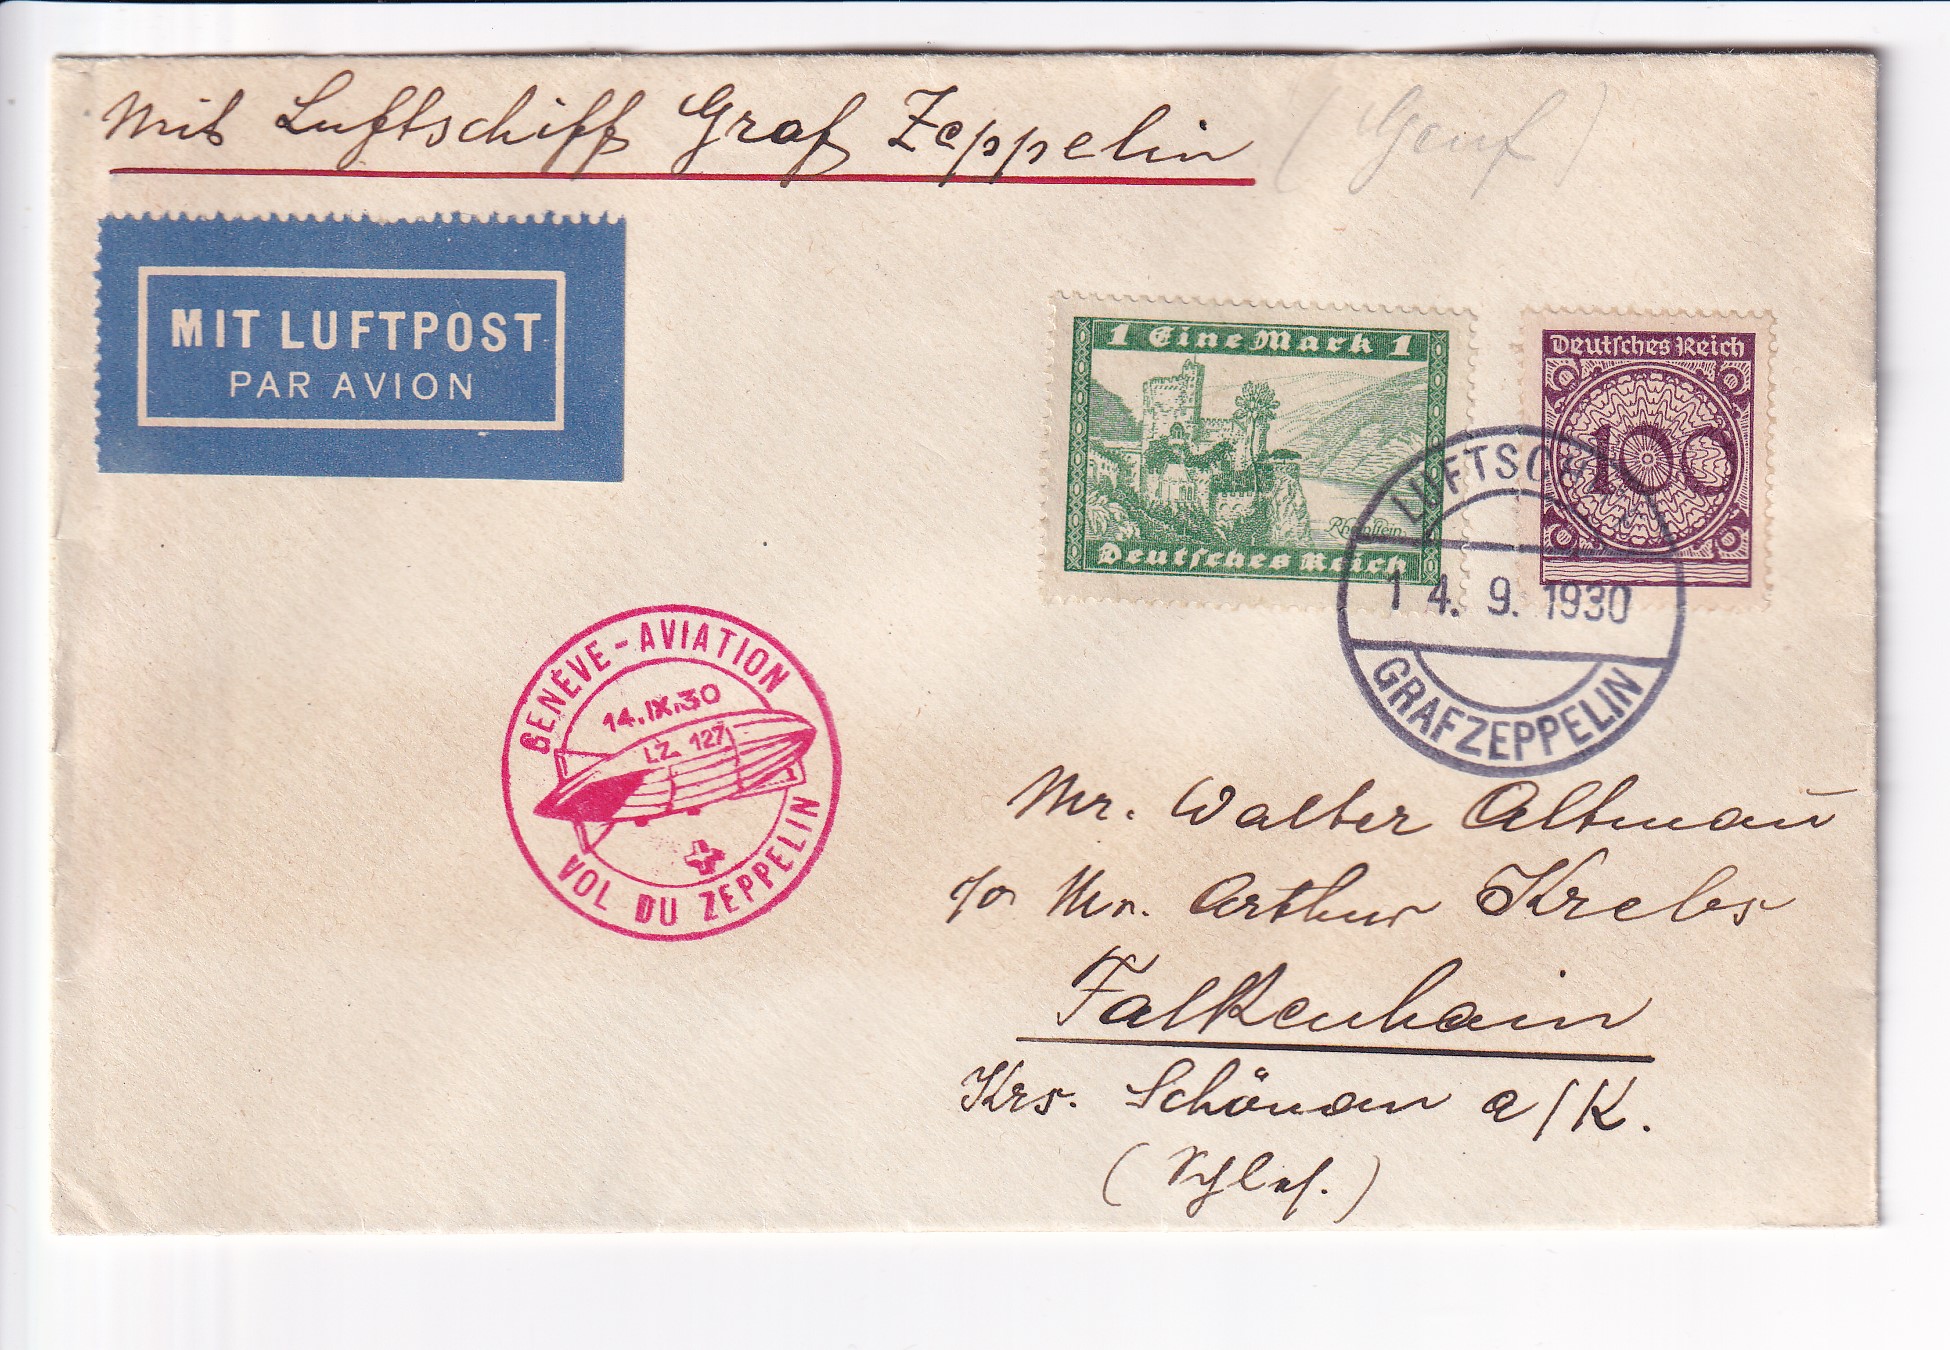 Mit Luftschiff Graf Zeppelin (Genf)
MIT LUFTPOST
PAR AVION
1 Eine Mark 1
Rheinstein
Deutsches Reich
Deutsches Reich
100
LUFTSCHIFF
14.9.1930
GRAF ZEPPELIN
GENÈVE-AVIATION
14.IX.30
LZ. 127
VOL DU ZEPPELIN
Mr. Walter Altmann
c/o Mr. Arthur Krebs
Falkenhain
Krs. Schönau a/K.
(Schles.)